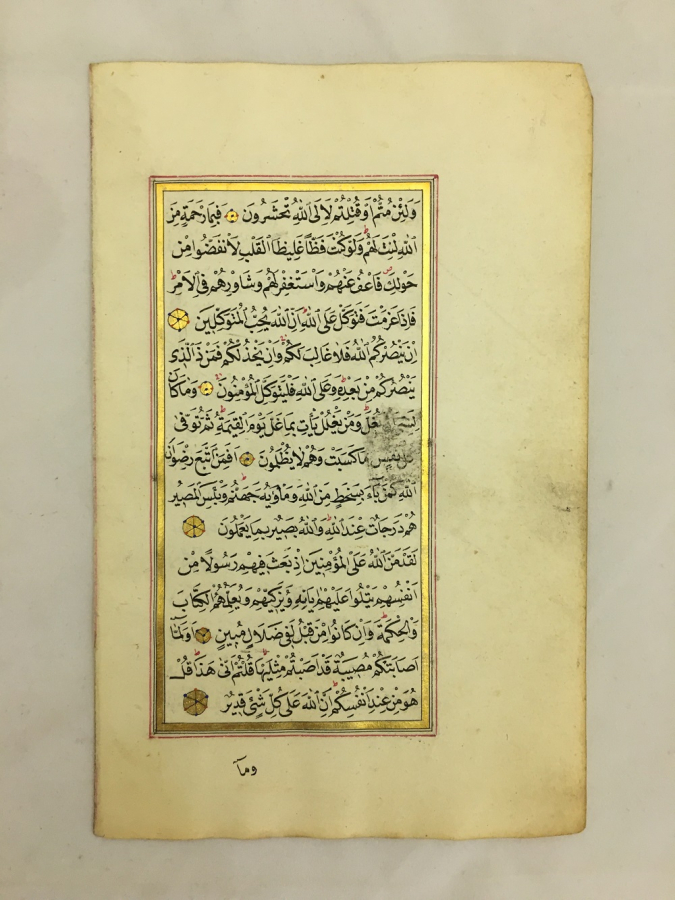 وَلَئِنْ مُتُّمْ اَوْ قُتِلْتُمْ لَاِلَى اللّٰهِ تُحْشَرُونَ فَبِمَا رَحْمَةٍ مِنَ
اللّٰهِ لِنْتَ لَهُمْ وَلَوْ كُنْتَ فَظًّا غَلِيظَ الْقَلْبِ لَانْفَضُّوا مِنْ
حَوْلِكَ فَاعْفُ عَنْهُمْ وَاسْتَغْفِرْ لَهُمْ وَشَاوِرْهُمْ فِى الْاَمْرِ
فَاِذَا عَزَمْتَ فَتَوَكَّلْ عَلَى اللّٰهِ اِنَّ اللّٰهَ يُحِبُّ الْمُتَوَكِّلِينَ
اِنْ يَنْصُرْكُمُ اللّٰهُ فَلَا غَالِبَ لَكُمْ وَاِنْ يَخْذُلْكُمْ فَمَنْ ذَا الَّذِى
يَنْصُرُكُمْ مِنْ بَعْدِهِ وَعَلَى اللّٰهِ فَلْيَتَوَكَّلِ الْمُؤْمِنُونَ وَمَا كَانَ
لِنَبِىٍّ اَنْ يَغُلَّ وَمَنْ يَغْلُلْ يَأْتِ بِمَا غَلَّ يَوْمَ الْقِيٰمَةِ ثُمَّ تُوَفّٰى
كُلُّ نَفْسٍ مَا كَسَبَتْ وَهُمْ لَا يُظْلَمُونَ اَفَمَنِ اتَّبَعَ رِضْوَانَ
اللّٰهِ كَمَنْ بَٓاءَ بِسَخَطٍ مِنَ اللّٰهِ وَمَأْوٰيهُ جَهَنَّمُ وَبِئْسَ الْمَصِيرُ
هُمْ دَرَجَاتٌ عِنْدَ اللّٰهِ وَاللّٰهُ بَصِيرٌ بِمَا يَعْمَلُونَ
لَقَدْ مَنَّ اللّٰهُ عَلَى الْمُؤْمِنِينَ اِذْ بَعَثَ فِيهِمْ رَسُولًا مِنْ
اَنْفُسِهِمْ يَتْلُوا عَلَيْهِمْ اٰيَاتِهِ وَيُزَكِّيهِمْ وَيُعَلِّمُهُمُ الْكِتَابَ
وَالْحِكْمَةَ وَاِنْ كَانُوا مِنْ قَبْلُ لَفِى ضَلَالٍ مُبِينٍ اَوَلَمَّٓا
اَصَابَتْكُمْ مُصِيبَةٌ قَدْ اَصَبْتُمْ مِثْلَيْهَا قُلْتُمْ اَنّٰى هٰذَا قُلْ
هُوَ مِنْ عِنْدِ اَنْفُسِكُمْ اِنَّ اللّٰهَ عَلٰى كُلِّ شَىْءٍ قَدِيرٌ
ومآ